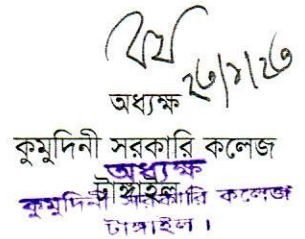 ২৩/১/২৩
অধ্যক্ষ
কুমুদিনী সরকারি কলেজ
টাঙ্গাইল
অধ্যক্ষ
কুমুদিনী সরকারি কলেজ
টাঙ্গাইল।